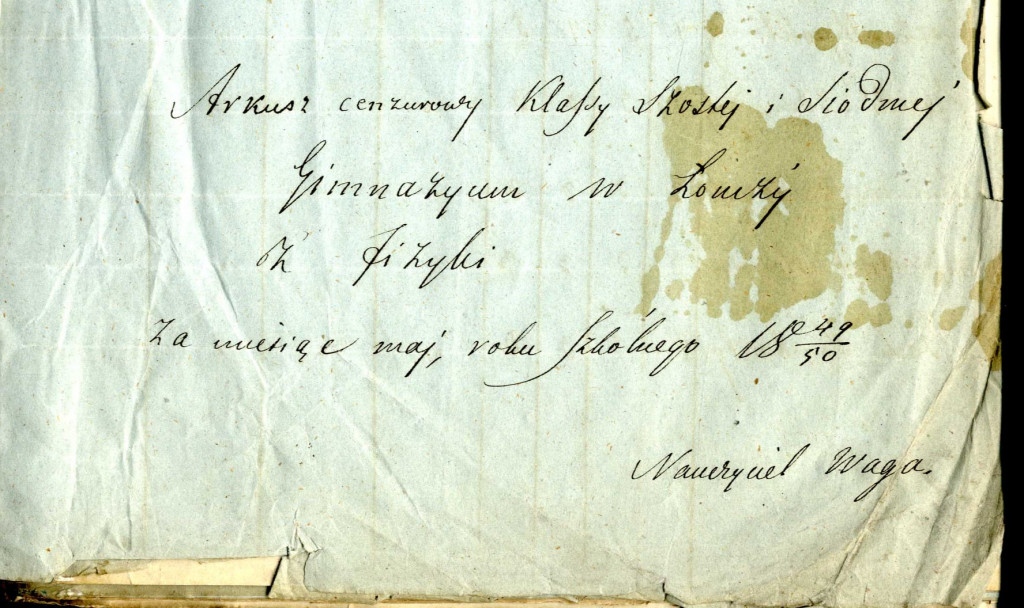 Arkusz cenzurowy Klassy Szostej i Siodmej
Gimnazyum w Łomży
z Fizyki
za miesiąc maj, roku szkólnego 18 49/50
Nauczyciel Waga.